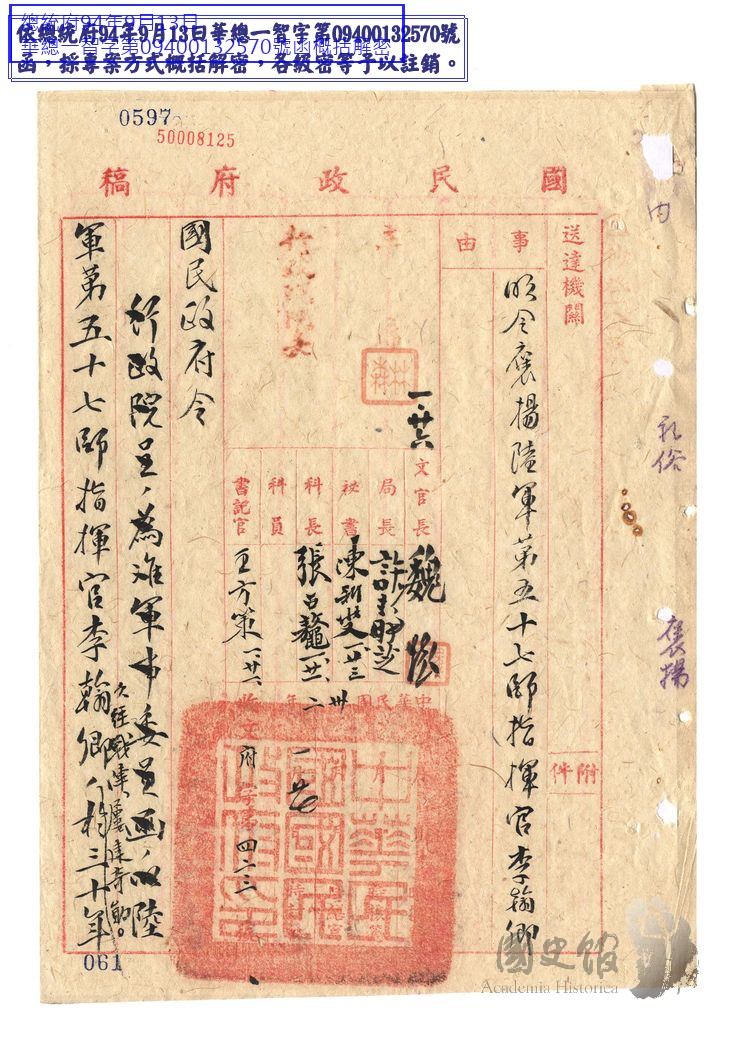 總統府94年9月13日
華總一智字第09400132570號函概括解密
依總統府94年9月13日華總一智字第09400132570號
函，採專案方式概括解密，各級密等予以註銷。
0597
50008125
國民政府稿
送達機關
附件
事由
明令褒揚陸軍第五十七師指揮官李翰卿
文官長 魏懷
一、廿六
局長 許
秘書
科長 張
科員
書記官 王方策
中華民國卅二年
收文府字第四二二號
國民政府令
行政院呈、為准軍事委員會函、以陸
軍第五十七師指揮官李翰卿、久經戰陣、屢建奇勳。於三十年
061
禮俗
褒揚
國史館
Academia Historica